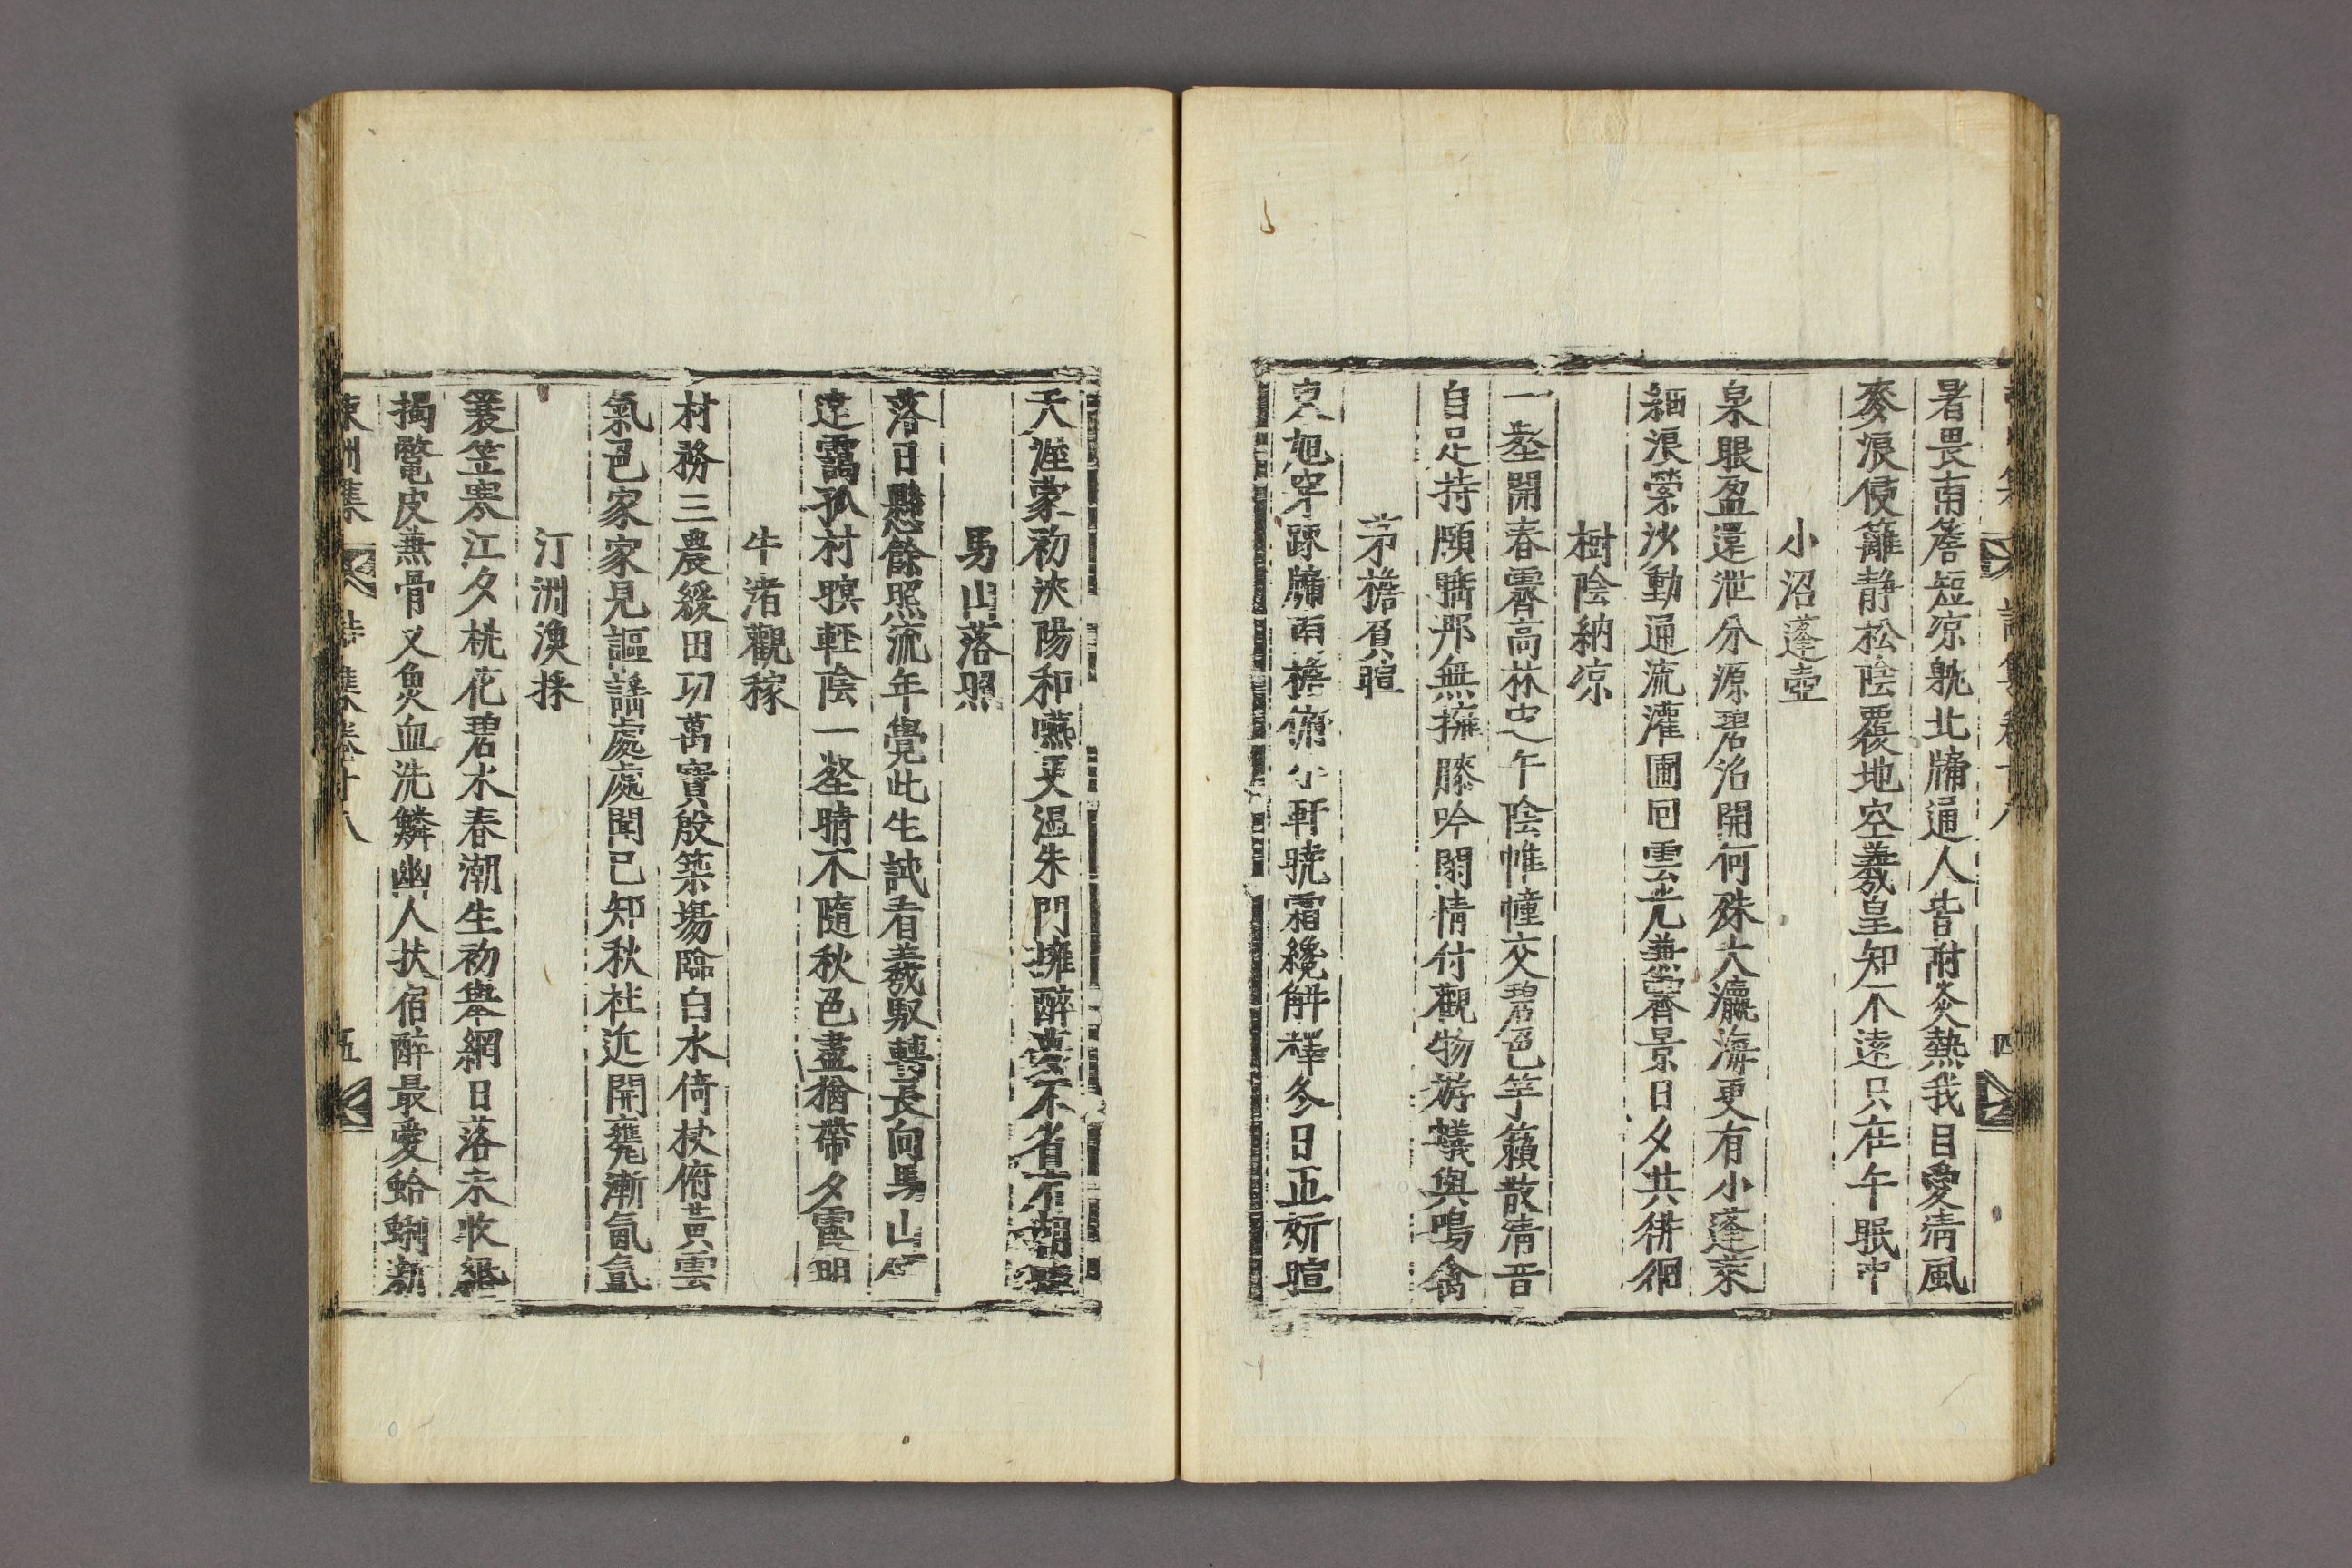 暑畏南簷短凉貺北牖通人皆附炎熱我自愛淸風
麥浪侵籬静松陰覆地空羲皇知不遠只在午眠中
小沼蓬壺
泉眼盈還泄分源碧沼開何殊大瀛海更有小蓬萊
細浪縈沙動通流灌圃囘雲光兼霽景日夕共徘徊
樹陰納凉
一壑開春霽高林忠午陰帷幢交碧色竽籟散淸音
自足持頤臥那無擁膝吟閑情付觀物游蟻與鳴禽
茅檐負暄
旭穿踈牖南檐俯小軒曉霜纔解釋冬日正姸暄
天涯蒙初浹陽和嚥更温朱門擁醉不省
馬山落照
落日懸餘照流年覺此生試看羲馭轉長向馬山
遠靄孤村暝輕陰一壑晴不隨秋色盡猶帶夕霞明
牛渚觀稼
村務三農緩田功萬寳殷築場臨白水倚杖俯黃雲
氣色家家見謳謠處處聞已知秋社近開甕漸氤氳
汀洲漁採
簑笠寒江夕桃花碧水春潮生初擧網日落未收緡
擉鼈皮兼骨叉魚血洗鱗幽人扶宿醉最愛蛤蜊新
洲集 詩集卷十八 五